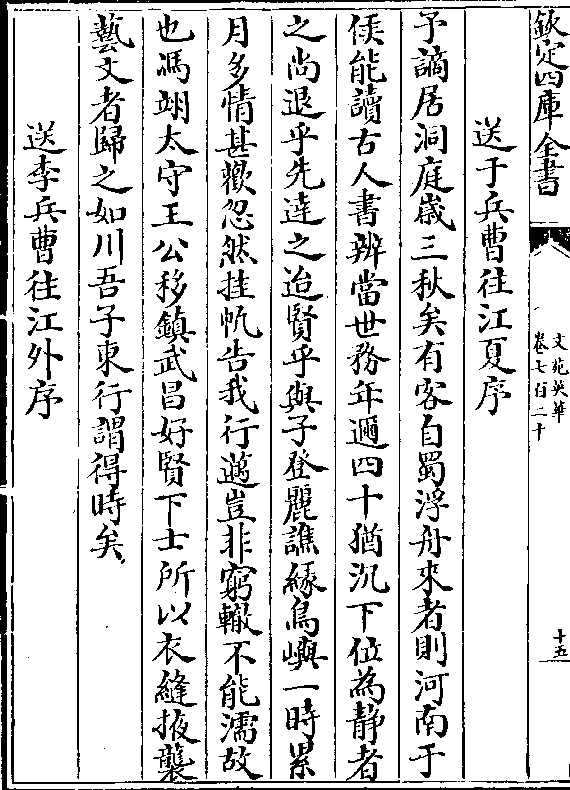 欽定四庫全書
文苑英華
卷七百二十
十五
送于兵曹往江夏序
予謫居洞庭歲三秋矣有客自蜀浮舟來者則河南于
侯能讀古人書辨當世務年邇四十猶沉下位為静者
之尚退乎先達之迨賢乎與子登麗譙緣鳥嶼一時累
月多情甚歡忽然挂帆告我行邁豈非窮轍不能濡故
也馮翊太守王公移鎮武昌好賢下士所以衣縫掖襲
藝文者歸之如川吾子東行謂得時矣
送李兵曹往江外序